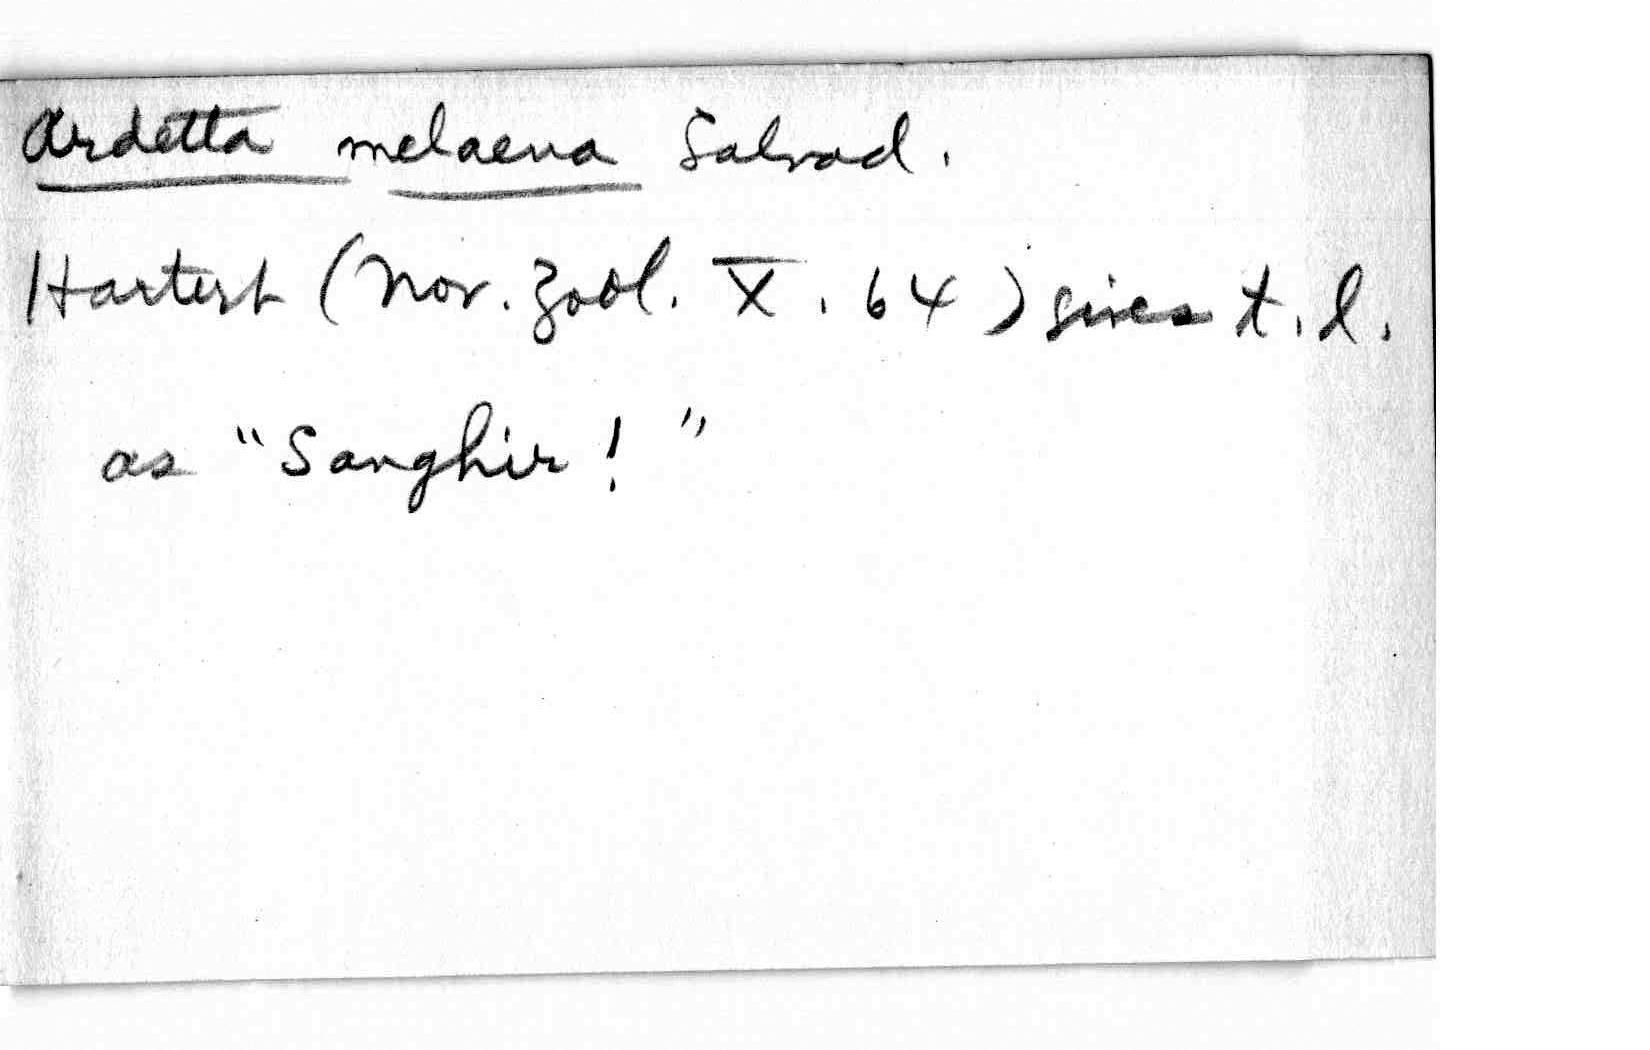 Ardetta melaena Salvad.
Hartert (Nov. Zool. X. 64) gives t.l.
as "Sanghir!"